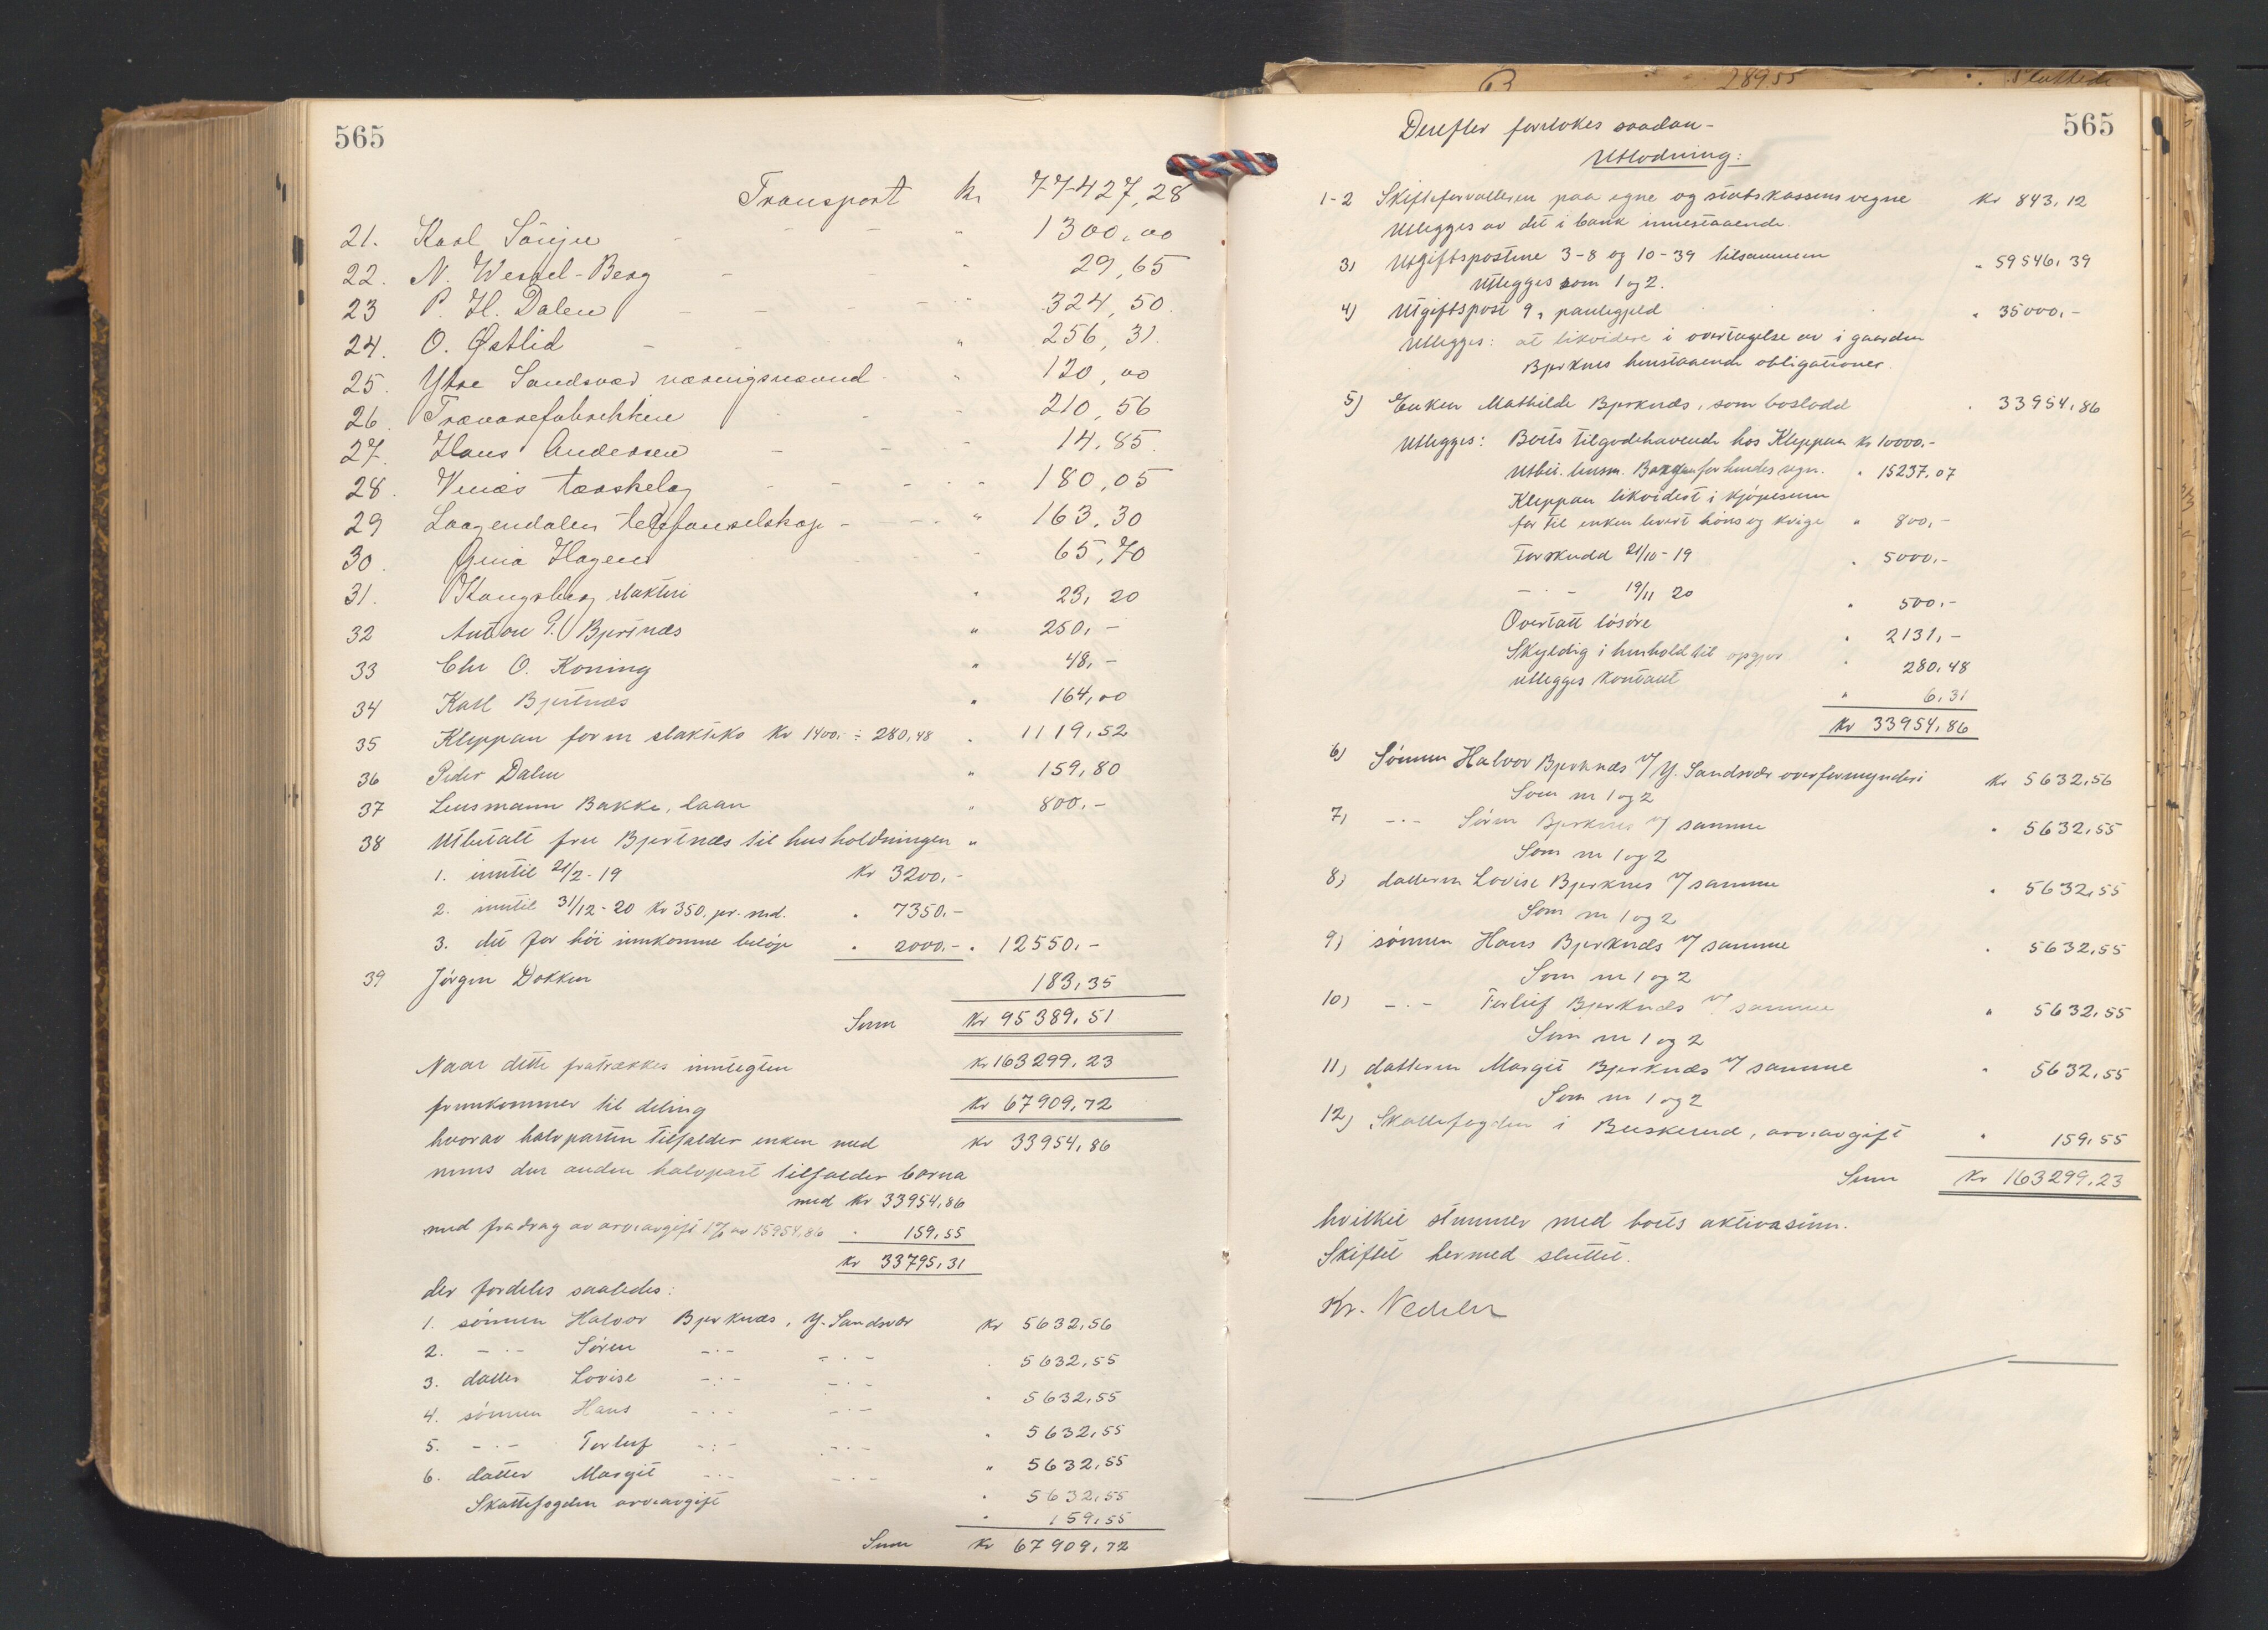 565
Transport Kr 77427,28
21. Karl Sönju " 1300,00
22. N. Wessel-Berg " 29,65
23 P. H. Dalen " 324,50
24. O. Østlid " 256,31
25. Ytre Sandsvær nævnigsnævnd " 120,00
26. Trævarefabrikken 210,56
27. Hans Andersen 14,85
28. Venæs tærskelag 180,05
29 Laagendalen telefonselskap " 163,30
30. Gina Hagen 65,70
31. Kongsberg slakteri " 23,20
32 Anton P. Bjertnæs " 250,-
33 Chr O. Koning " 48,-
34 Karl Bjertnæs " 164,00
35 Kleppan for m slaktko Kr 1400,- ÷ 280,48 " 1119,52
36 Peder Dalen " 159,80
37 Lensmann Bakke, laan " 800,-
38 Utbetalt fru Bjertnæs til husholdningen "
1. inntil 21/2-19 Kr 3200,-
2. inntil 31/12-20 Kr 350. pr. md. " 7350,-
3. det for höi innkomne belöp " 2000,- " 12550,-
39 Jörgen Dokken 183,35
Sum Kr 95389,51
Naar dette fratrækkes inntegten Kr 163299,23
fremkommer til deling Kr 67909,72
hvorav halvparten tilfalder enken med Kr 33954,86
mens den anden halvpart tilfalder barna
med Kr 33954,86
med fradrag av arveavgift 1% av 15954,86 " 159,55
Kr 33795,31
der fordeles saaledes:
1. sönnen Halvor Bjerknæs, Y. Sandsvær Kr 5632,56
2. -.- Sören -.- -.- " 5632,55
3. datter Lovise -.- -.- " 5632,55
4. sönnen Hans -.- -.- " 5632,55
5. -.- Torleif -.- -.- " 5632,55
6. datter Margit -.- -.- " 5632,55
Skattefogden arveavgift " 159,55
Sum Kr 67909,72
565
Derefter foretokes saadan-
Utlodning:
1-2 Skifteforvalteren paa egne og statskassens vegne Kr 843,12
Utlegges av det i bank innestaaende.
3) Utgiftspostene 3-8 og 10-39 tilsammen " 59546,39
Utlegges som 1 og 2.
4) Utgiftspost 9, pantegjeld " 35000,-
Utlegges: at likvidere i overtagelse av i gaarden
Bjerknes henstaaende obligationer.
5) Enken Mathilde Bjerknæs, som boslodd " 33954,86
Utlegges: Boets tilgodehavende hos Kleppan Kr 10000,-
Utbet. lensm. for hendes regn. " 15237,07
Kleppan likvidert i kjöpesum
for til enken levert höns og kvige " 800,-
Forskudd 21/10-19 " 5000,-
-.- 19/11 20 " 500,-
Overtatt lösöre " 2131,-
Skyldig i henhold til opgjör " 280,48
utlegges kontant " 6,31
Kr 33954,86
6) Sönnen Halvor Bjerknæs v/ Y. Sandsvær overformynderi Kr 5632,56
Som nr 1 og 2
7) -.- Sören Bjerknes v/ samme " 5632,55
Som nr 1 og 2
8) datteren Lovise Bjerknes v/ samme " 5632,55
Som nr 1 og 2
9) sönnen Hans Bjerknæs v/ samme " 5632,55
Som nr 1 og 2
10) -.- Torleif Bjerknæs v/ samme " 5632,55
Som nr 1 og 2
11) datteren Margit Bjerknæs v/ samme " 5632,55
Som nr 1 og 2
12) Skattefogden i Buskerud, arveavgift " 159,55
Sum Kr 163299,23
hvilket stemmer med boets aktivasum.
Skiftet hermed sluttet.
Kr.